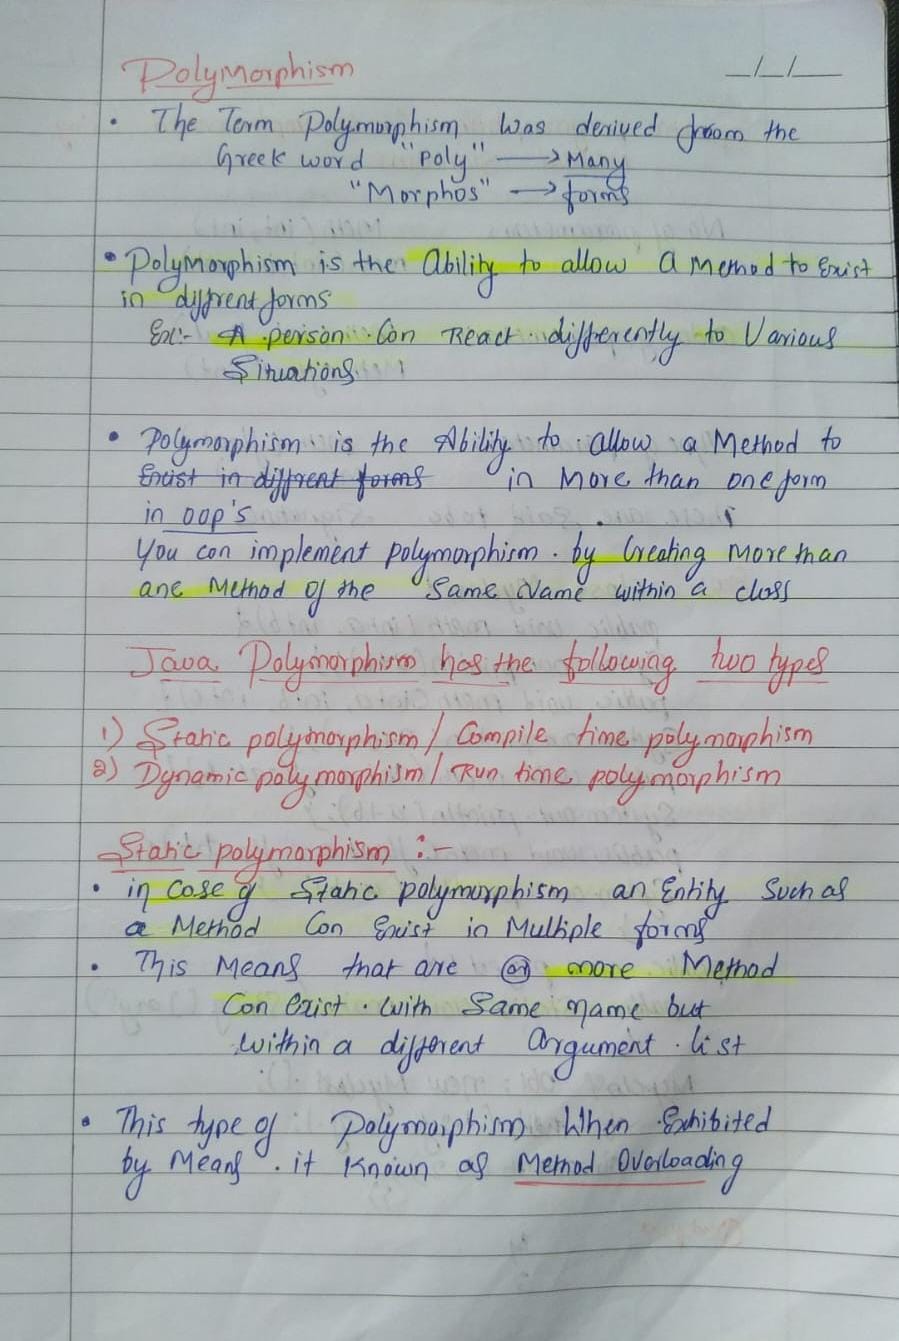 Polymorphism
_/_/__
• The Term Polymorphism was derived from the
Greek word "Poly" → Many
"Morphos" → forms
• Polymorphism is the Ability to allow a Method to Exist
in diffrent forms
Ex:- A person Can React differently to Various
Situations.
• Polymorphism is the Ability to allow a Method to
Exist in diffrent forms in More than one form
in oop's
You can implement polymorphism by Creating More than
one Method of the Same Name within a class
Java Polymorphism has the following two types
1) Static polymorphism / Compile time polymorphism
2) Dynamic polymorphism / Run time polymorphism
Static polymorphism :-
• in Case of Static polymorphism an Entity Such as
a Method Can Exist in Multiple forms
• This Means that are or more Method
Can Exist with Same name but
within a different Argument list
• This type of Polymorphism When Exhibited
by Means it Known as Method Overloading